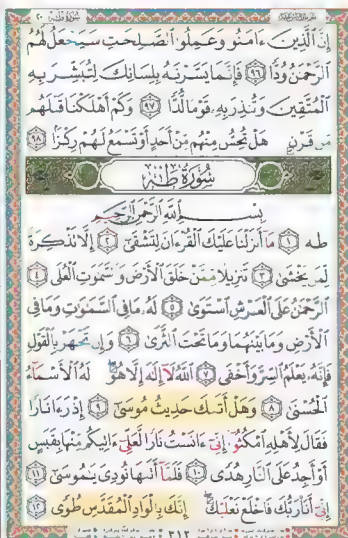 سورة طه ٢٠
إِنَّ ٱلَّذِينَ ءَامَنُوا۟ وَعَمِلُوا۟ ٱلصَّٰلِحَٰتِ سَيَجْعَلُ لَهُمُ
ٱلرَّحْمَٰنُ وُدًّا ٩٦ فَإِنَّمَا يَسَّرْنَٰهُ بِلِسَانِكَ لِتُبَشِّرَ بِهِ
ٱلْمُتَّقِينَ وَتُنذِرَ بِهِۦ قَوْمًا لُّدًّا ٩٧ وَكَمْ أَهْلَكْنَا قَبْلَهُم
مِّن قَرْنٍ هَلْ تُحِسُّ مِنْهُم مِّنْ أَحَدٍ أَوْ تَسْمَعُ لَهُمْ رِكْزًا ٩٨
سُورَةُ طه
بِسْمِ ٱللَّهِ ٱلرَّحْمَٰنِ ٱلرَّحِيمِ
طه ١ مَآ أَنزَلْنَا عَلَيْكَ ٱلْقُرْءَانَ لِتَشْقَىٰٓ ٢ إِلَّا تَذْكِرَةً
لِّمَن يَخْشَىٰ ٣ تَنزِيلًا مِّمَّنْ خَلَقَ ٱلْأَرْضَ وَٱلسَّمَٰوَٰتِ ٱلْعُلَى ٤
ٱلرَّحْمَٰنُ عَلَى ٱلْعَرْشِ ٱسْتَوَىٰ ٥ لَهُۥ مَا فِى ٱلسَّمَٰوَٰتِ وَمَا فِى
ٱلْأَرْضِ وَمَا بَيْنَهُمَا وَمَا تَحْتَ ٱلثَّرَىٰ ٦ وَإِن تَجْهَرْ بِٱلْقَوْلِ
فَإِنَّهُۥ يَعْلَمُ ٱلسِّرَّ وَأَخْفَى ٧ ٱللَّهُ لَآ إِلَٰهَ إِلَّا هُوَ ۖ لَهُ ٱلْأَسْمَآءُ
ٱلْحُسْنَىٰ ٨ وَهَلْ أَتَىٰكَ حَدِيثُ مُوسَىٰٓ ٩ إِذْ رَءَا نَارًا
فَقَالَ لِأَهْلِهِ ٱمْكُثُوٓا۟ إِنِّىٓ ءَانَسْتُ نَارًا لَّعَلِّىٓ ءَاتِيكُم مِّنْهَا بِقَبَسٍ
أَوْ أَجِدُ عَلَى ٱلنَّارِ هُدًى ١٠ فَلَمَّآ أَتَىٰهَا نُودِىَ يَٰمُوسَىٰٓ ١١
إِنِّىٓ أَنَا۠ رَبُّكَ فَٱخْلَعْ نَعْلَيْكَ ۖ إِنَّكَ بِٱلْوَادِ ٱلْمُقَدَّسِ طُوًى ١٢
٣١٢